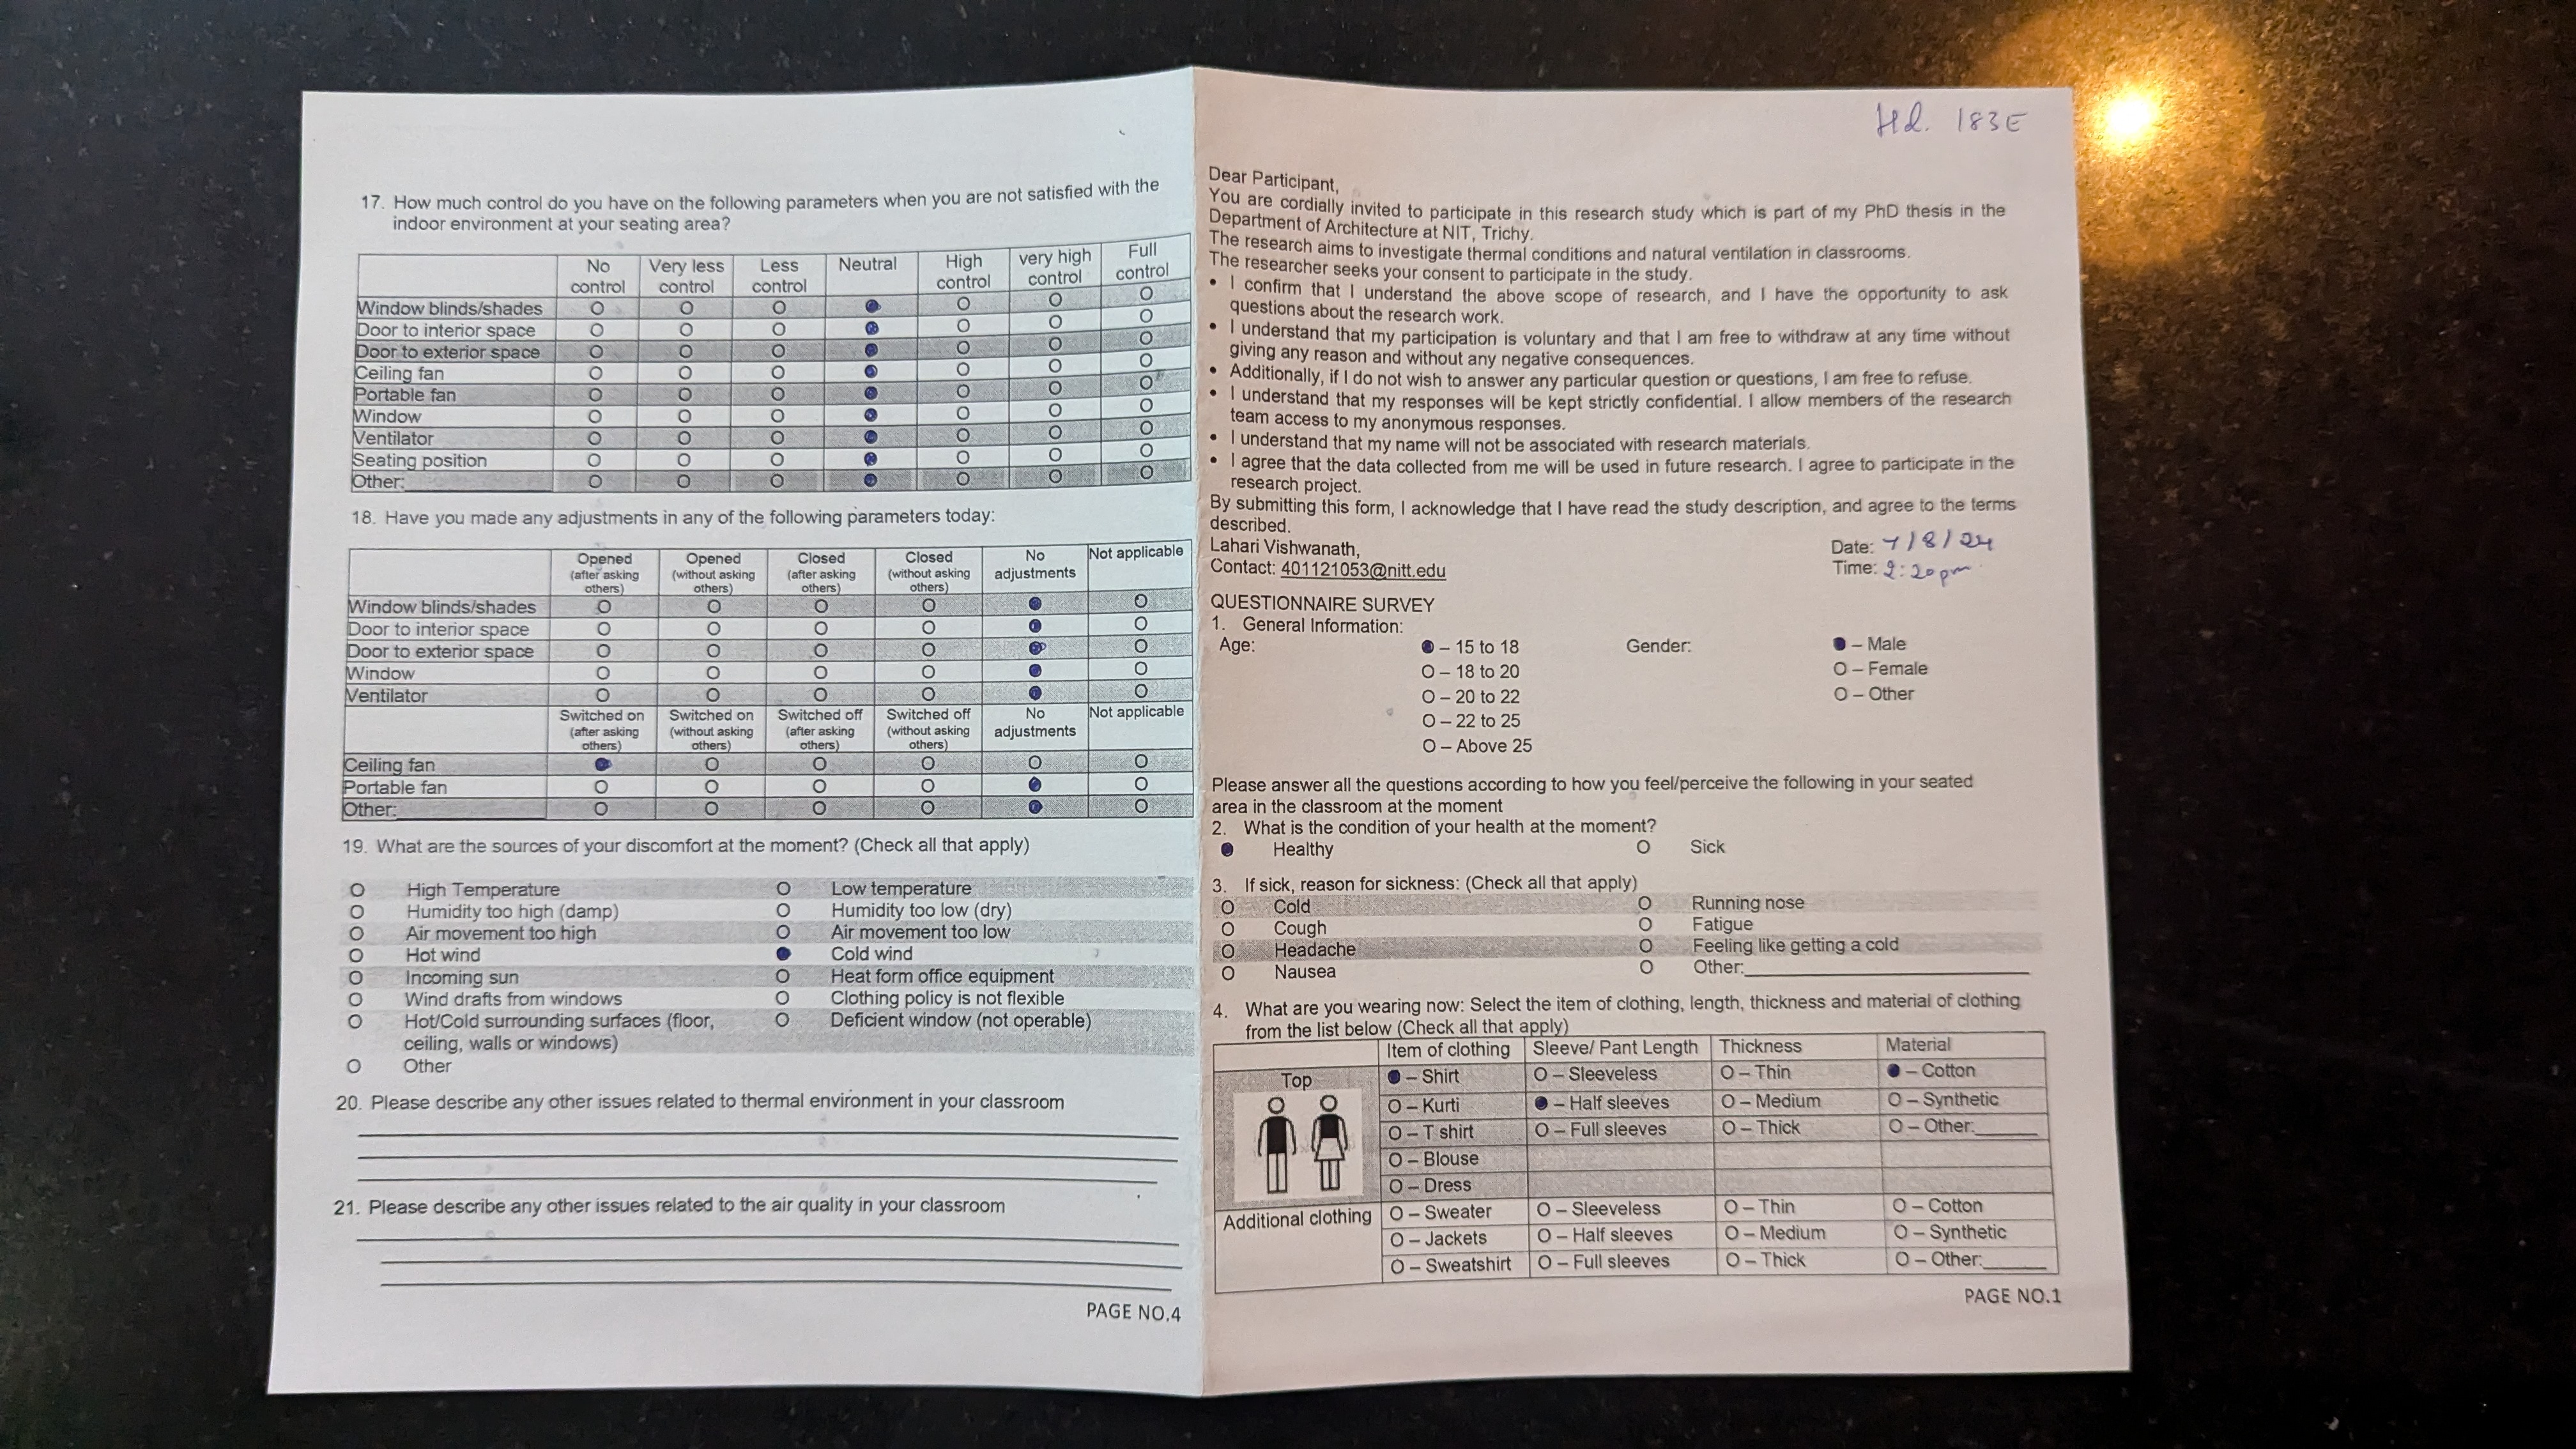 17. How much control do you have on the following parameters when you are not satisfied with the
indoor environment at your seating area?
No control Very less control Less control Neutral High control very high control Full control
Window blinds/shades O O O ● O O O
Door to interior space O O O ● O O O
Door to exterior space O O O ● O O O
Ceiling fan O O O ● O O O
Portable fan O O O ● O O O
Window O O O ● O O O
Ventilator O O O ● O O O
Seating position O O O ● O O O
Other: O O O ● O O O
18. Have you made any adjustments in any of the following parameters today:
Opened (after asking others) Opened (without asking others) Closed (after asking others) Closed (without asking others) No adjustments Not applicable
Window blinds/shades O O O O ● O
Door to interior space O O O O ● O
Door to exterior space O O O O ● O
Window O O O O ● O
Ventilator O O O O ● O
Switched on (after asking others) Switched on (without asking others) Switched off (after asking others) Switched off (without asking others) No adjustments Not applicable
Ceiling fan ● O O O O O
Portable fan O O O O ● O
Other: O O O O ● O
19. What are the sources of your discomfort at the moment? (Check all that apply)
O High Temperature O Low temperature
O Humidity too high (damp) O Humidity too low (dry)
O Air movement too high O Air movement too low
O Hot wind ● Cold wind
O Incoming sun O Heat form office equipment
O Wind drafts from windows O Clothing policy is not flexible
O Hot/Cold surrounding surfaces (floor, O Deficient window (not operable)
ceiling, walls or windows)
O Other
20. Please describe any other issues related to thermal environment in your classroom
21. Please describe any other issues related to the air quality in your classroom
PAGE NO.4
Hd. 183E
Dear Participant,
You are cordially invited to participate in this research study which is part of my PhD thesis in the
Department of Architecture at NIT, Trichy.
The research aims to investigate thermal conditions and natural ventilation in classrooms.
The researcher seeks your consent to participate in the study.
• I confirm that I understand the above scope of research, and I have the opportunity to ask
questions about the research work.
• I understand that my participation is voluntary and that I am free to withdraw at any time without
giving any reason and without any negative consequences.
• Additionally, if I do not wish to answer any particular question or questions, I am free to refuse.
• I understand that my responses will be kept strictly confidential. I allow members of the research
team access to my anonymous responses.
• I understand that my name will not be associated with research materials.
• I agree that the data collected from me will be used in future research. I agree to participate in the
research project.
By submitting this form, I acknowledge that I have read the study description, and agree to the terms
described.
Lahari Vishwanath, Date: 7/8/24
Contact: 401121053@nitt.edu Time: 2:20pm
QUESTIONNAIRE SURVEY
1. General Information:
Age: ● – 15 to 18 Gender: ● – Male
O – 18 to 20 O – Female
O – 20 to 22 O – Other
O – 22 to 25
O – Above 25
Please answer all the questions according to how you feel/perceive the following in your seated
area in the classroom at the moment
2. What is the condition of your health at the moment?
● Healthy O Sick
3. If sick, reason for sickness: (Check all that apply)
O Cold O Running nose
O Cough O Fatigue
O Headache O Feeling like getting a cold
O Nausea O Other:
4. What are you wearing now: Select the item of clothing, length, thickness and material of clothing
from the list below (Check all that apply)
Item of clothing Sleeve/ Pant Length Thickness Material
Top ● – Shirt O – Sleeveless O – Thin ● – Cotton
O – Kurti ● – Half sleeves O – Medium O – Synthetic
O – T shirt O – Full sleeves O – Thick O – Other:
O – Blouse
O – Dress
Additional clothing O – Sweater O – Sleeveless O – Thin O – Cotton
O – Jackets O – Half sleeves O – Medium O – Synthetic
O – Sweatshirt O – Full sleeves O – Thick O – Other:
PAGE NO.1